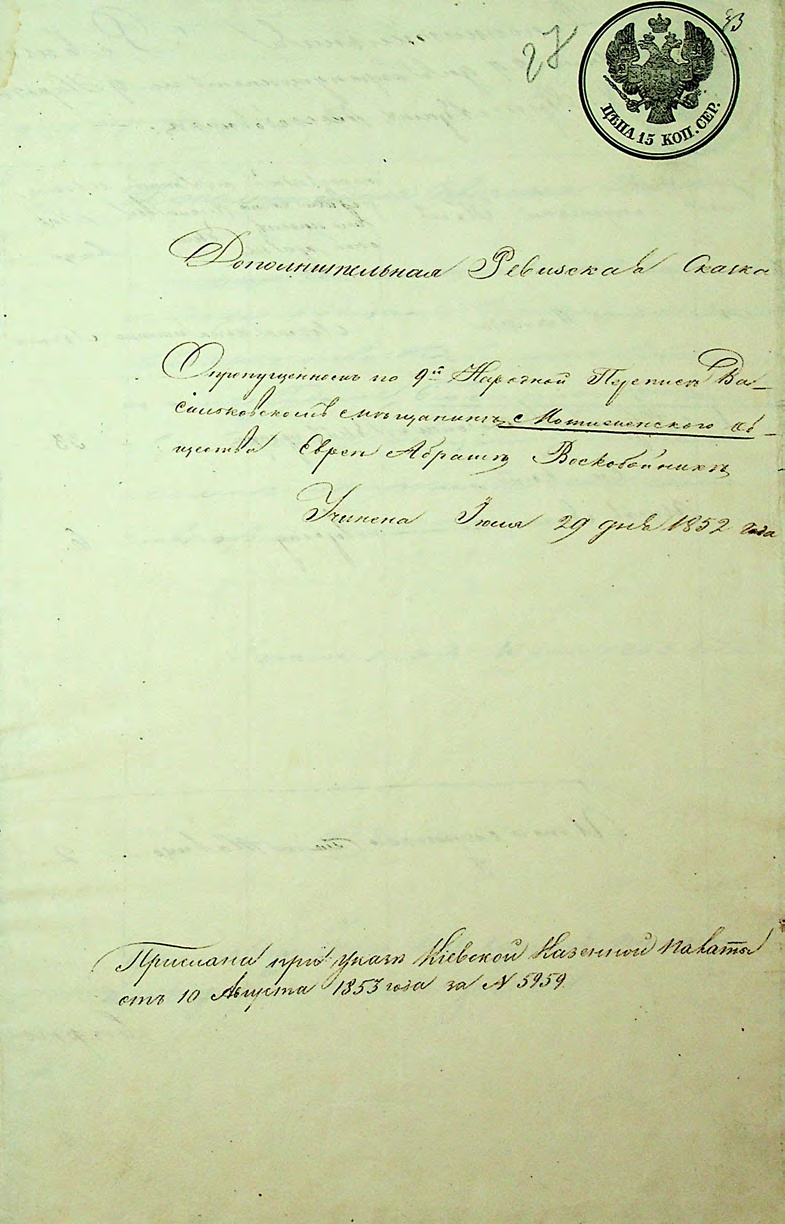 27
33
ЦѢНА 15 КОП. СЕР.
Дополнительная Ревизская Сказка
О пропущенномъ по 9й Народной Переписи Ва-
сильковскомъ мѣщанинѣ с Мотиженского об-
щества Еврея Абрамъ Воскобойникѣ
Учинена Іюля 29 дня 1852 года
Прислана при указѣ Кіевской Казенной Палаты
отъ 10 Августа 1853 года за N 5959.